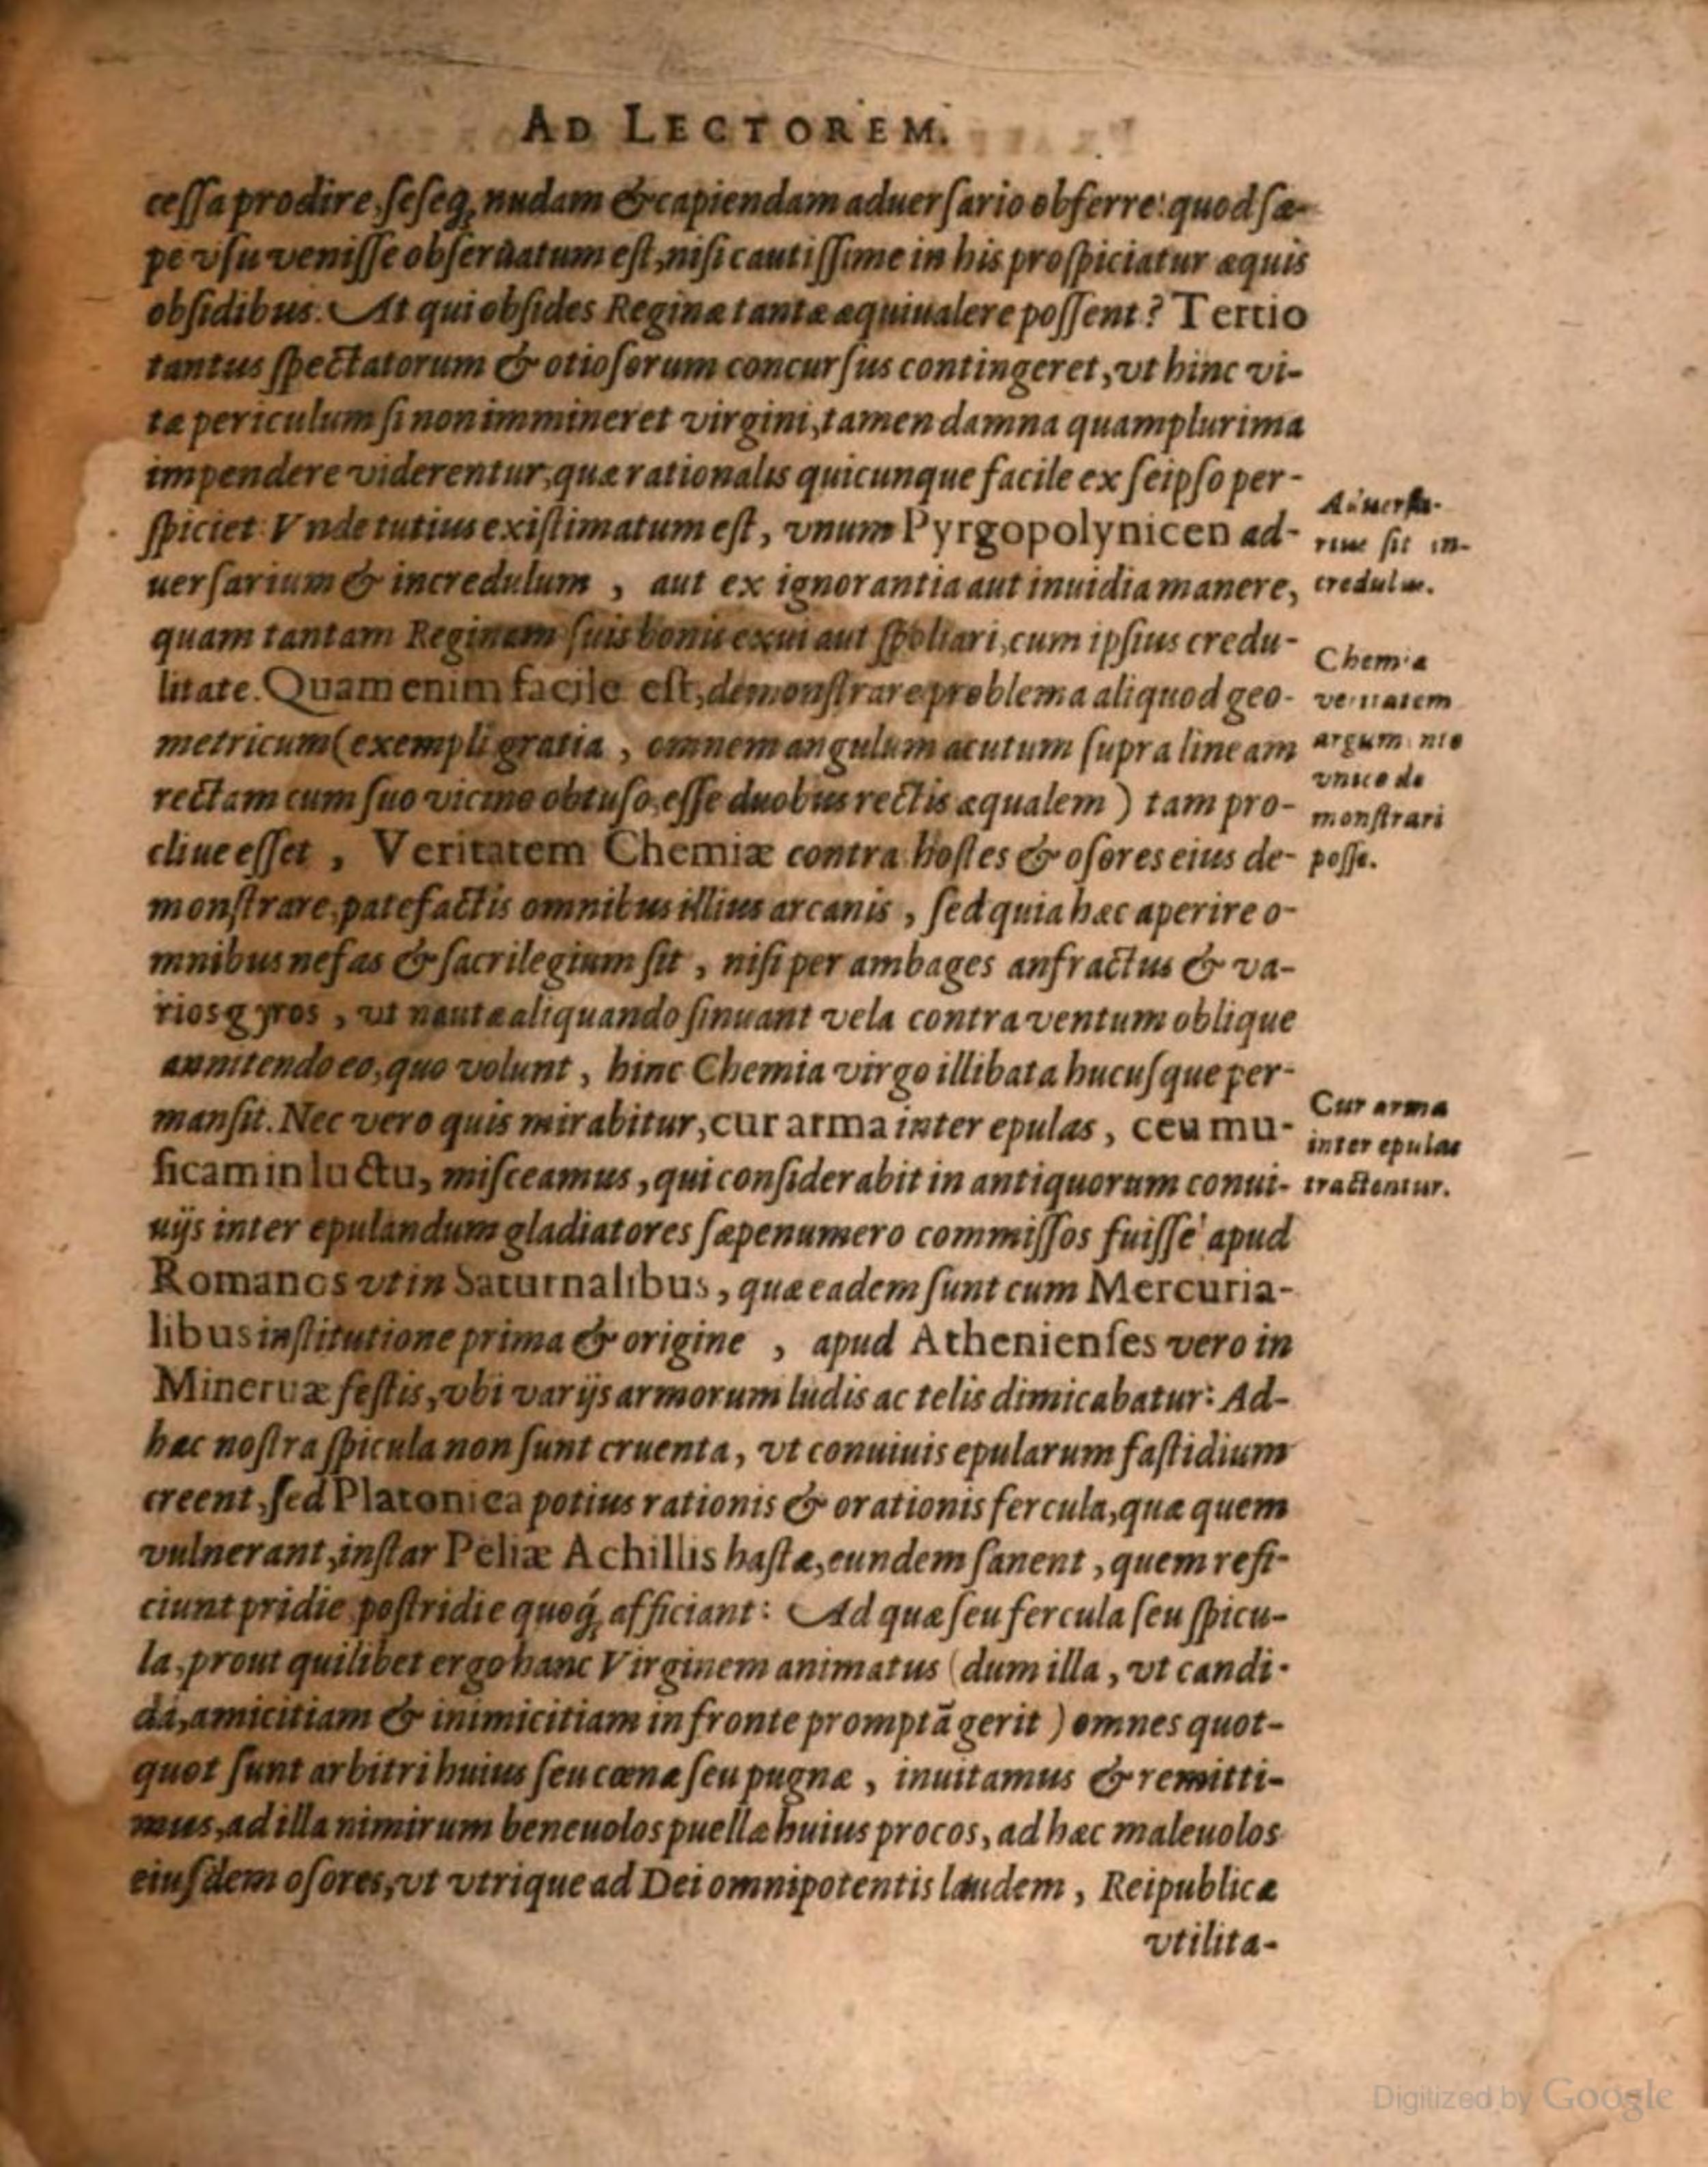 AD LECTOREM.
cessa prodire, seseq; nudam & capiendam aduersario obferre: quod sæ-
pe vsu venisse obseruatum est, nisi cautissime in his prospiciatur æquis
obsidibus. At qui obsides Reginæ tantæ æquiualere possent? Tertio
tantus spectatorum & otiosorum concursus contingeret, vt hinc vi-
tæ periculum si non immineret virgini, tamen damna quamplurima
impendere viderentur, quæ rationalis quicunque facile ex seipso per-
spiciet: Vnde tutius existimatum est, vnum Pyrgopolynicen ad-
uersarium & incredulum, aut ex ignorantia aut inuidia manere,
quam tantam Reginam suis bonis exui aut spoliari, cum ipsius credu-
litate. Quam enim facile est, demonstrare problema aliquod geo-
metricum (exempli gratia, omnem angulum acutum supra lineam
rectam cum suo vicino obtuso, esse duobus rectis æqualem) tam pro-
cliue esset, Veritatem Chemiæ contra hostes & osores eius de-
monstrare, patefactis omnibus illius arcanis, sed quia hæc aperire o-
mnibus nefas & sacrilegium sit, nisi per ambages anfractus & va-
rios gyros, vt nautæ aliquando sinuant vela contra ventum oblique
annitendo eo, quo volunt, hinc Chemia virgo illibata hucusque per-
mansit. Nec vero quis mirabitur, cur arma inter epulas, ceu mu-
sicam in luctu, misceamus, qui considerabit in antiquorum conui-
uijs inter epulandum gladiatores sæpenumero commissos fuisse apud
Romanos vt in Saturnalibus, quæ eadem sunt cum Mercuria-
libus institutione prima & origine, apud Athenienses vero in
Mineruæ festis, vbi varijs armorum ludis ac telis dimicabatur: Ad-
hæc nostra spicula non sunt cruenta, vt conuiuis epularum fastidium
creent, sed Platonica potius rationis & orationis fercula, quæ quem
vulnerant, instar Peliæ Achillis hastæ, eundem sanent, quem refi-
ciunt pridie postridie quoq; afficiant: Ad quæ seu fercula seu spicu-
la, prout quilibet ergo hanc Virginem animatus (dum illa, vt candi-
da, amicitiam & inimicitiam in fronte promptā gerit) omnes quot-
quot sunt arbitri huius seu cœnæ seu pugnæ, inuitamus & remitti-
mus, ad illa nimirum beneuolos puellæ huius procos, ad hæc maleuolos
eiusdem osores, vt vtrique ad Dei omnipotentis laudem, Reipublicæ
vtilita-
Aduersa-
rius sit in-
credulus.
Chemia
veritatem
argumento
vnico de
monstrari
posse.
Cur arma
inter epulas
tractentur.
Digitized by Google